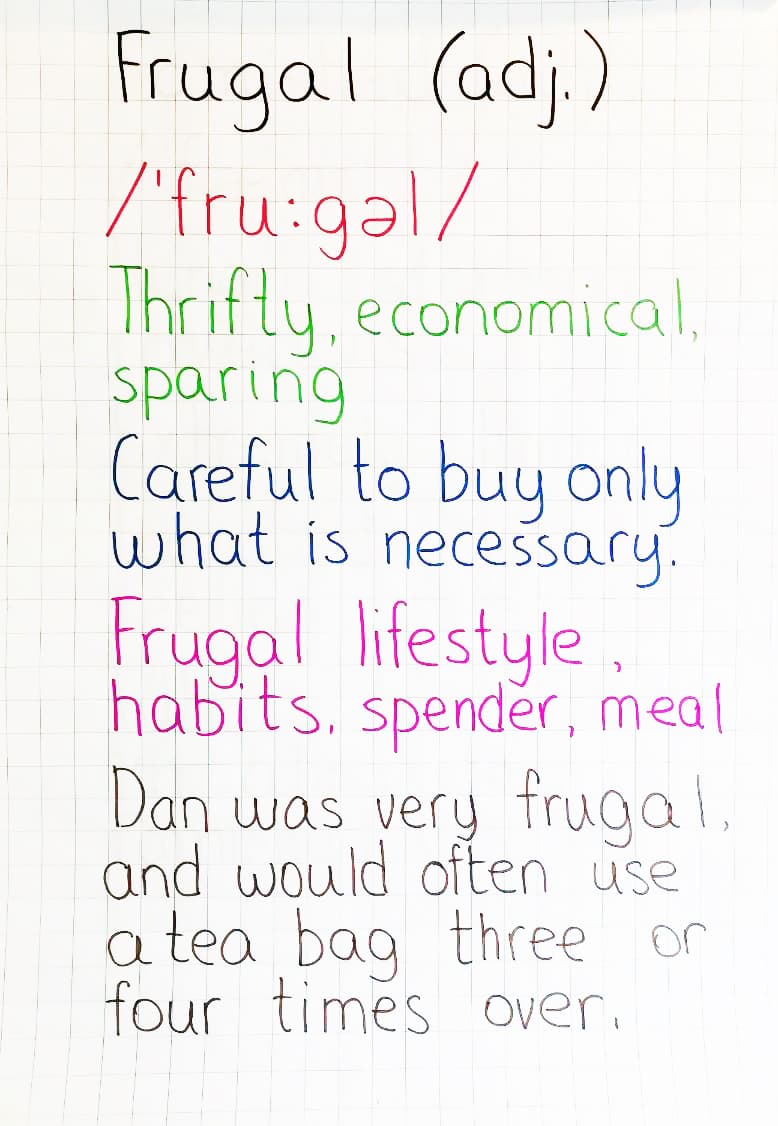 Frugal (adj.)
/'fru:gəl/
Thrifty, economical,
sparing
Careful to buy only
what is necessary.
Frugal lifestyle,
habits, spender, meal
Dan was very frugal,
and would often use
a tea bag three or
four times over.